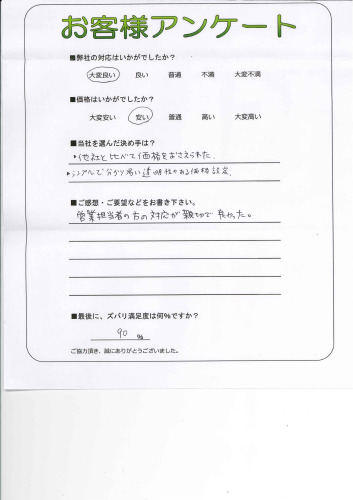 お客様アンケート
■弊社の対応はいかがでしたか？
大変良い 良い 普通 不満 大変不満
■価格はいかがでしたか？
大変安い 安い 普通 高い 大変高い
■当社を選んだ決め手は？
・他社と比べて価格をおさえられた。
・シンプルで分かり易い透明性のある価格設定。
■ご感想・ご要望などをお書き下さい。
営業担当者の方の対応が親切で良かった。
■最後に、ズバリ満足度は何%ですか？
90 %
ご協力頂き、誠にありがとうございました。